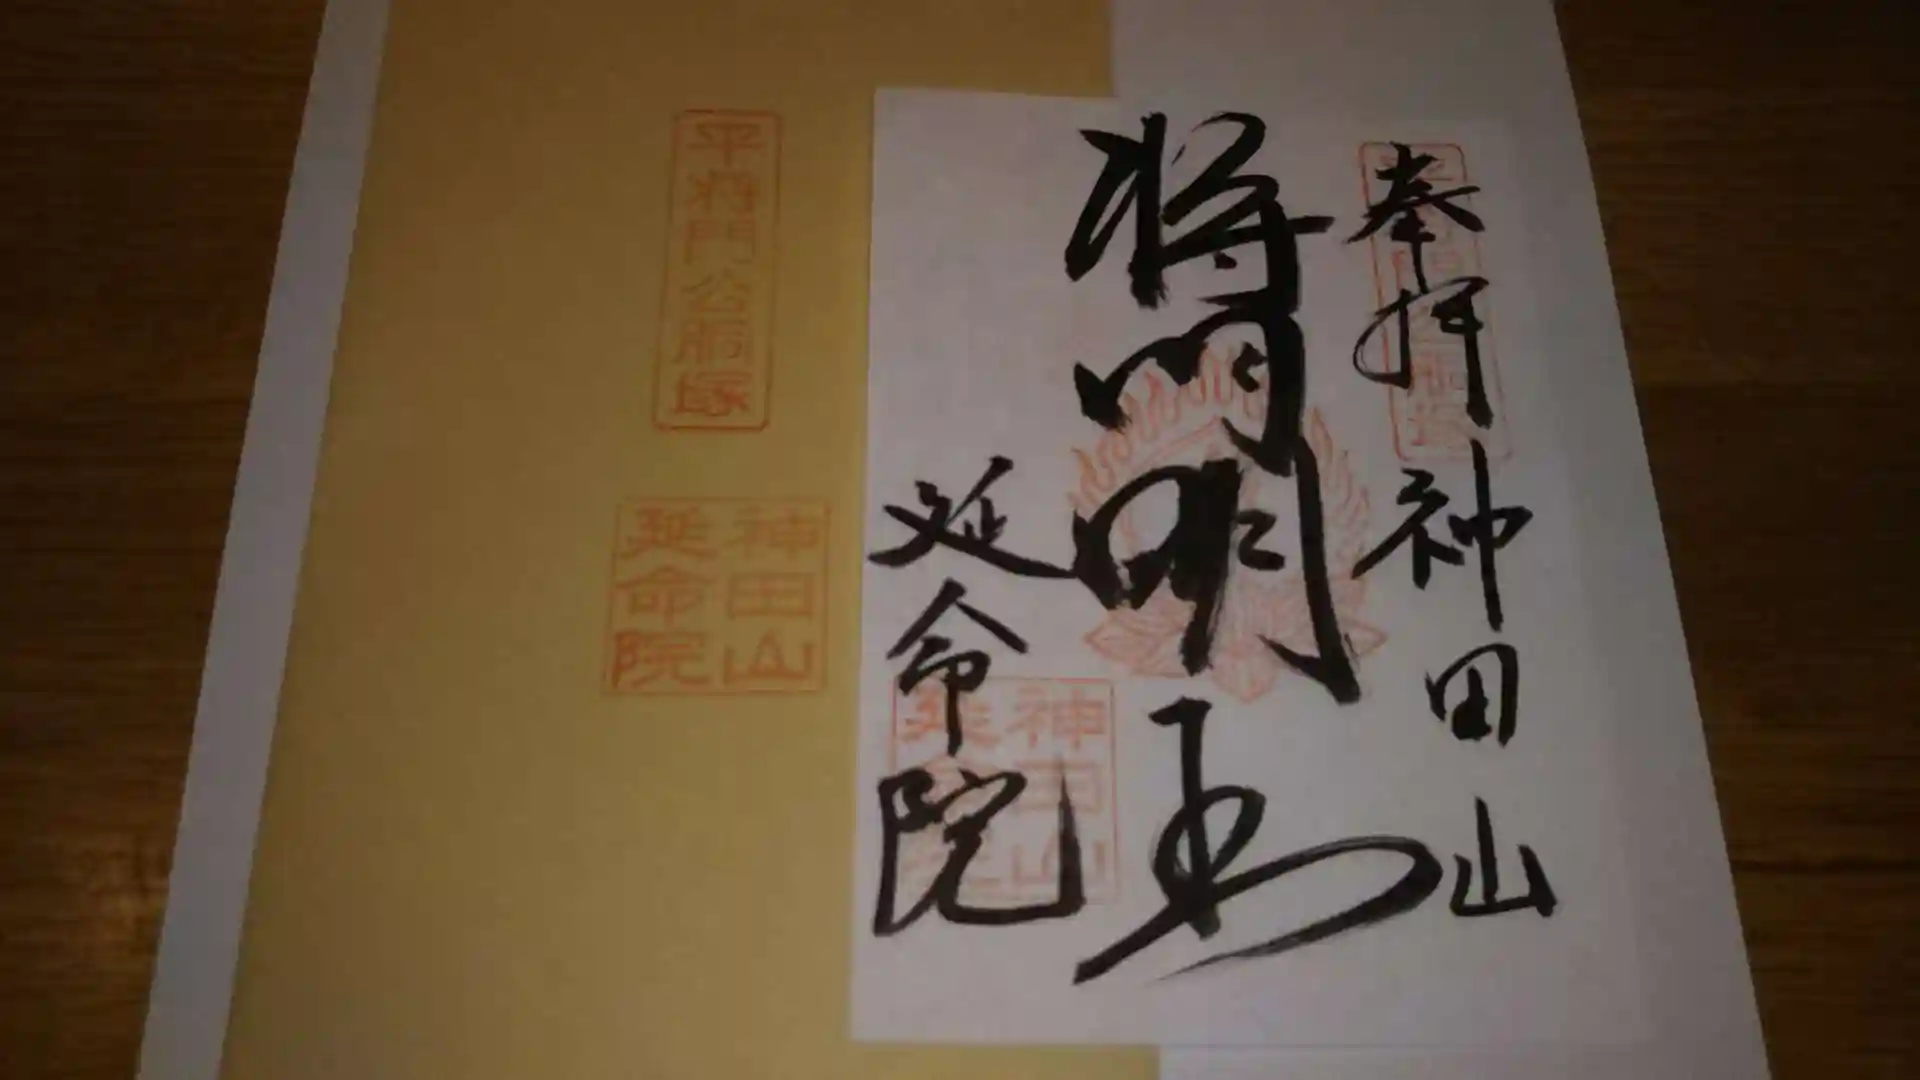 奉拝 神田山
将門明王
延命院
平将門公胴塚
神田山
延命院
平将門公胴塚
神田山
延命院